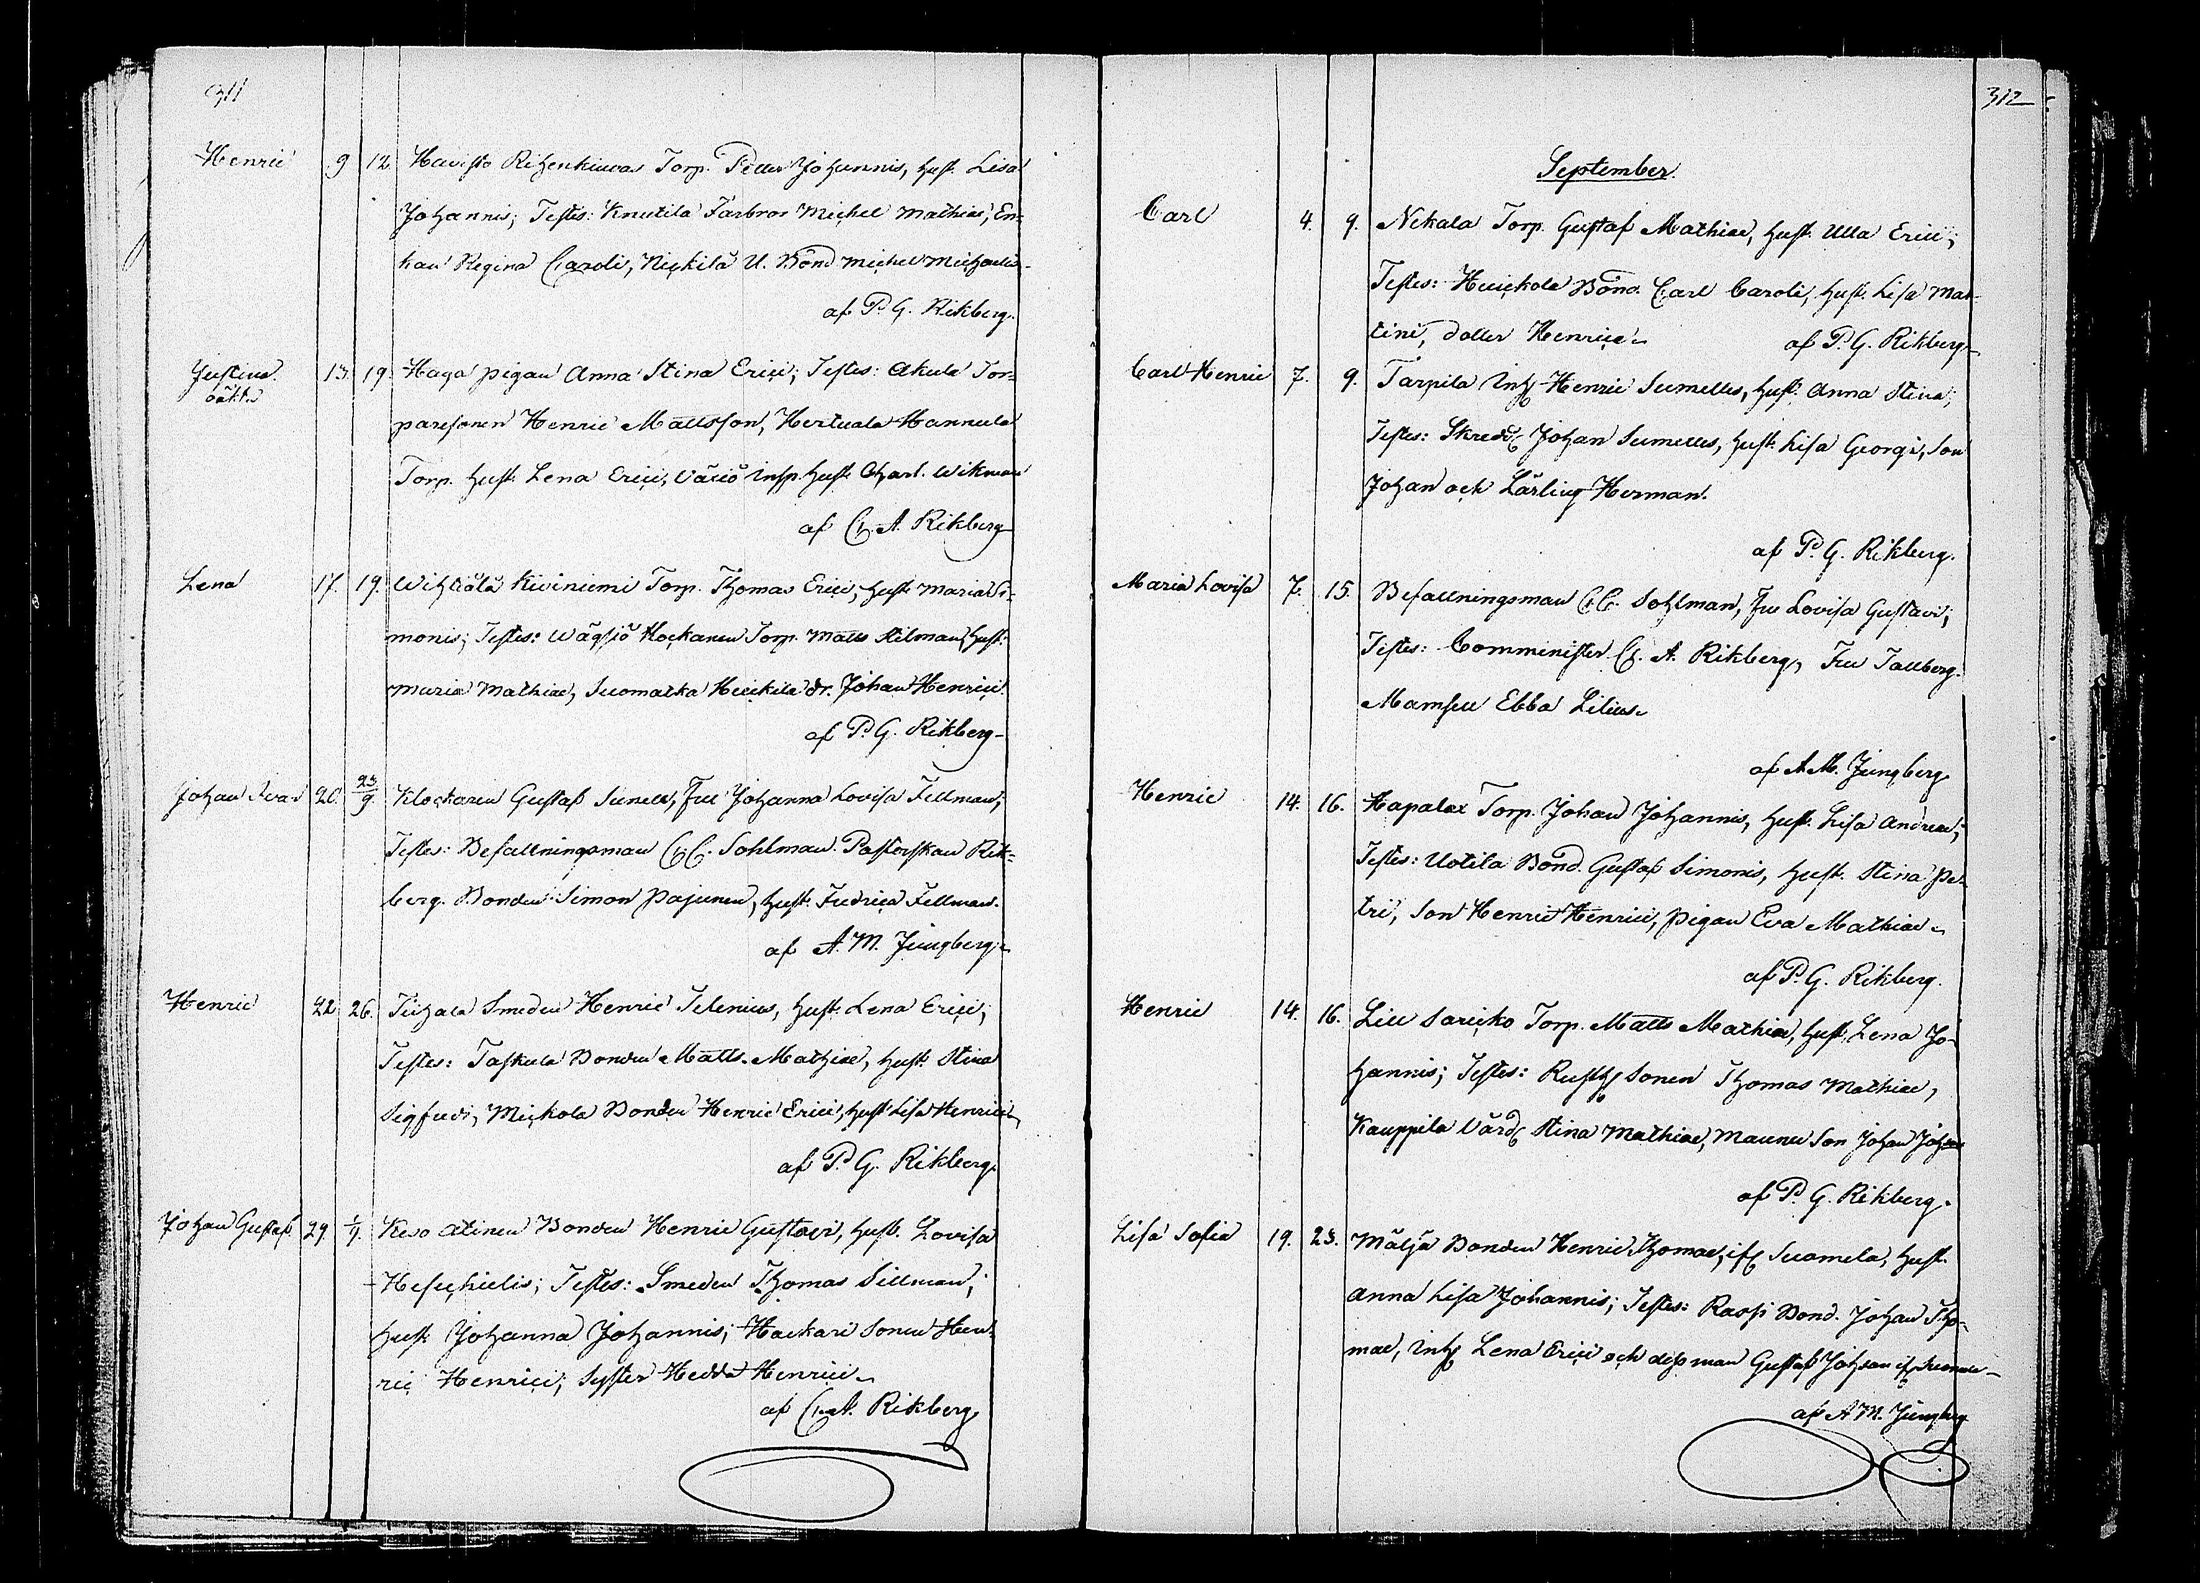 311
Henric 9 12. Havisto Rihenkiwas Torp. Petter Johannis, hust. Lisa
Johannis; Testes: Knutila Farbror Michel Mathiae, En-
kan Regina Caroli, Nickilä U. Bond. Michel Michaelis
af P. G. Rikberg.
Justina oäkta 13. 19. Haga pigan Anna Stina Erici; Testes: Akula Tor-
paresonen Henric Mattsson, Hertuala Hannula
Torp. hust. Lena Erici, Wäxiö Insp. hust. Charl. Wikman
af C. A. Rikberg
Lena 17. 19. Kiviniemi Torp. Thomas Erici, hust. Maria Si-
monis; Testes: Kockanen Torp. Matts Stilman, hust.
Maria Mathiae, Suomatka Heickilä dr. Johan Henrici
af P. G. Rikberg
Johan Ivar 20. 23/9 Klockaren Gustaf Sumell, Fru Johanna Lovisa Fellman;
Testes: Befallningsman C. C. Sohlman. Pastorskan Rik-
berg. Bonden Simon Pajunen, hust. Fredrica Fellman.
af A. M. Jungberg
Henric 22 26. Tuhala Smeden Henric Telenius, hust. Lena Erici;
Testes: Taskula Bonden Matts Mathiae, hust. Stina
Sigfredi, Mickola Bonden Henric Erici, hust. Lisa Henrici
af P. G. Rikberg.
Johan Gustaf 29 1/9. Keso Atinen Bonden Henric Gustavi, hust. Lovisa
Hesechielis; Testes: Smeden Thomas Sillman,
hust. Johanna Johannis; Hackari Sonen Hen-
ric Henrici, Syster Hedda Henrici
af C. A. Rikberg
312
September.
Carl 4. 9. Nekala Torp. Gustaf Mathiae, hust. Ulla Erici;
Testes: Heickola Bond. Carl Caroli, hust. Lisa Mar-
tini, dotter Henrica af P. G. Rikberg
Carl Henric 7. 9. Tarpila Inh. Henric Sumelius, hust. Anna Stina;
Testes: Skredd. Johan Sumelius, hust. Lisa Georgi, Son
Johan och Lärling Herman.
af P. G. Rikberg.
Maria Lovisa 7. 15. Befallningsman C. C. Sohlman, Fru Lovisa Gustavi;
Testes: Comminister C. A. Rikberg, Fru Tallberg.
Mamsell Ebba Lilius
af A. M. Jungberg
Henric 14. 16. Hapalax Torp. Johan Johannis, hust. Lisa Andreae;
Testes: Uotila Bond. Gustaf Simonis, hust. Stina Pe-
tri, Son Henric Henrici, pigan Eva Mathiae
af P. G. Rikberg.
Henric 14. 16. Lill Saricko Torp. Matts Mathiae, hust. Lena Jo-
hannis; Testes: Rusth. Sonen Thomas Mathiae,
Kauppila Värd. Stina Mathiae, Maunu Son Johan Johan
af P. G. Rikberg.
Lisa Sofia 19. 23. Mäljä Bonden Henric Thomae, if. Suomela, hust.
Anna Lisa Johannis; Testes: Rassi Bond. Johan Tho-
mae, Inh. Lena Erici och dess man Gustaf Johan if. Suomela
af A. M. Jungberg